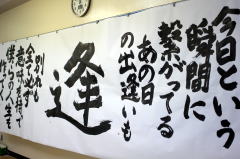 今日という
瞬間に
繋がってる
あの日
の出逢いも
逢
別れも
全ては
意味を持って
僕らの人生を